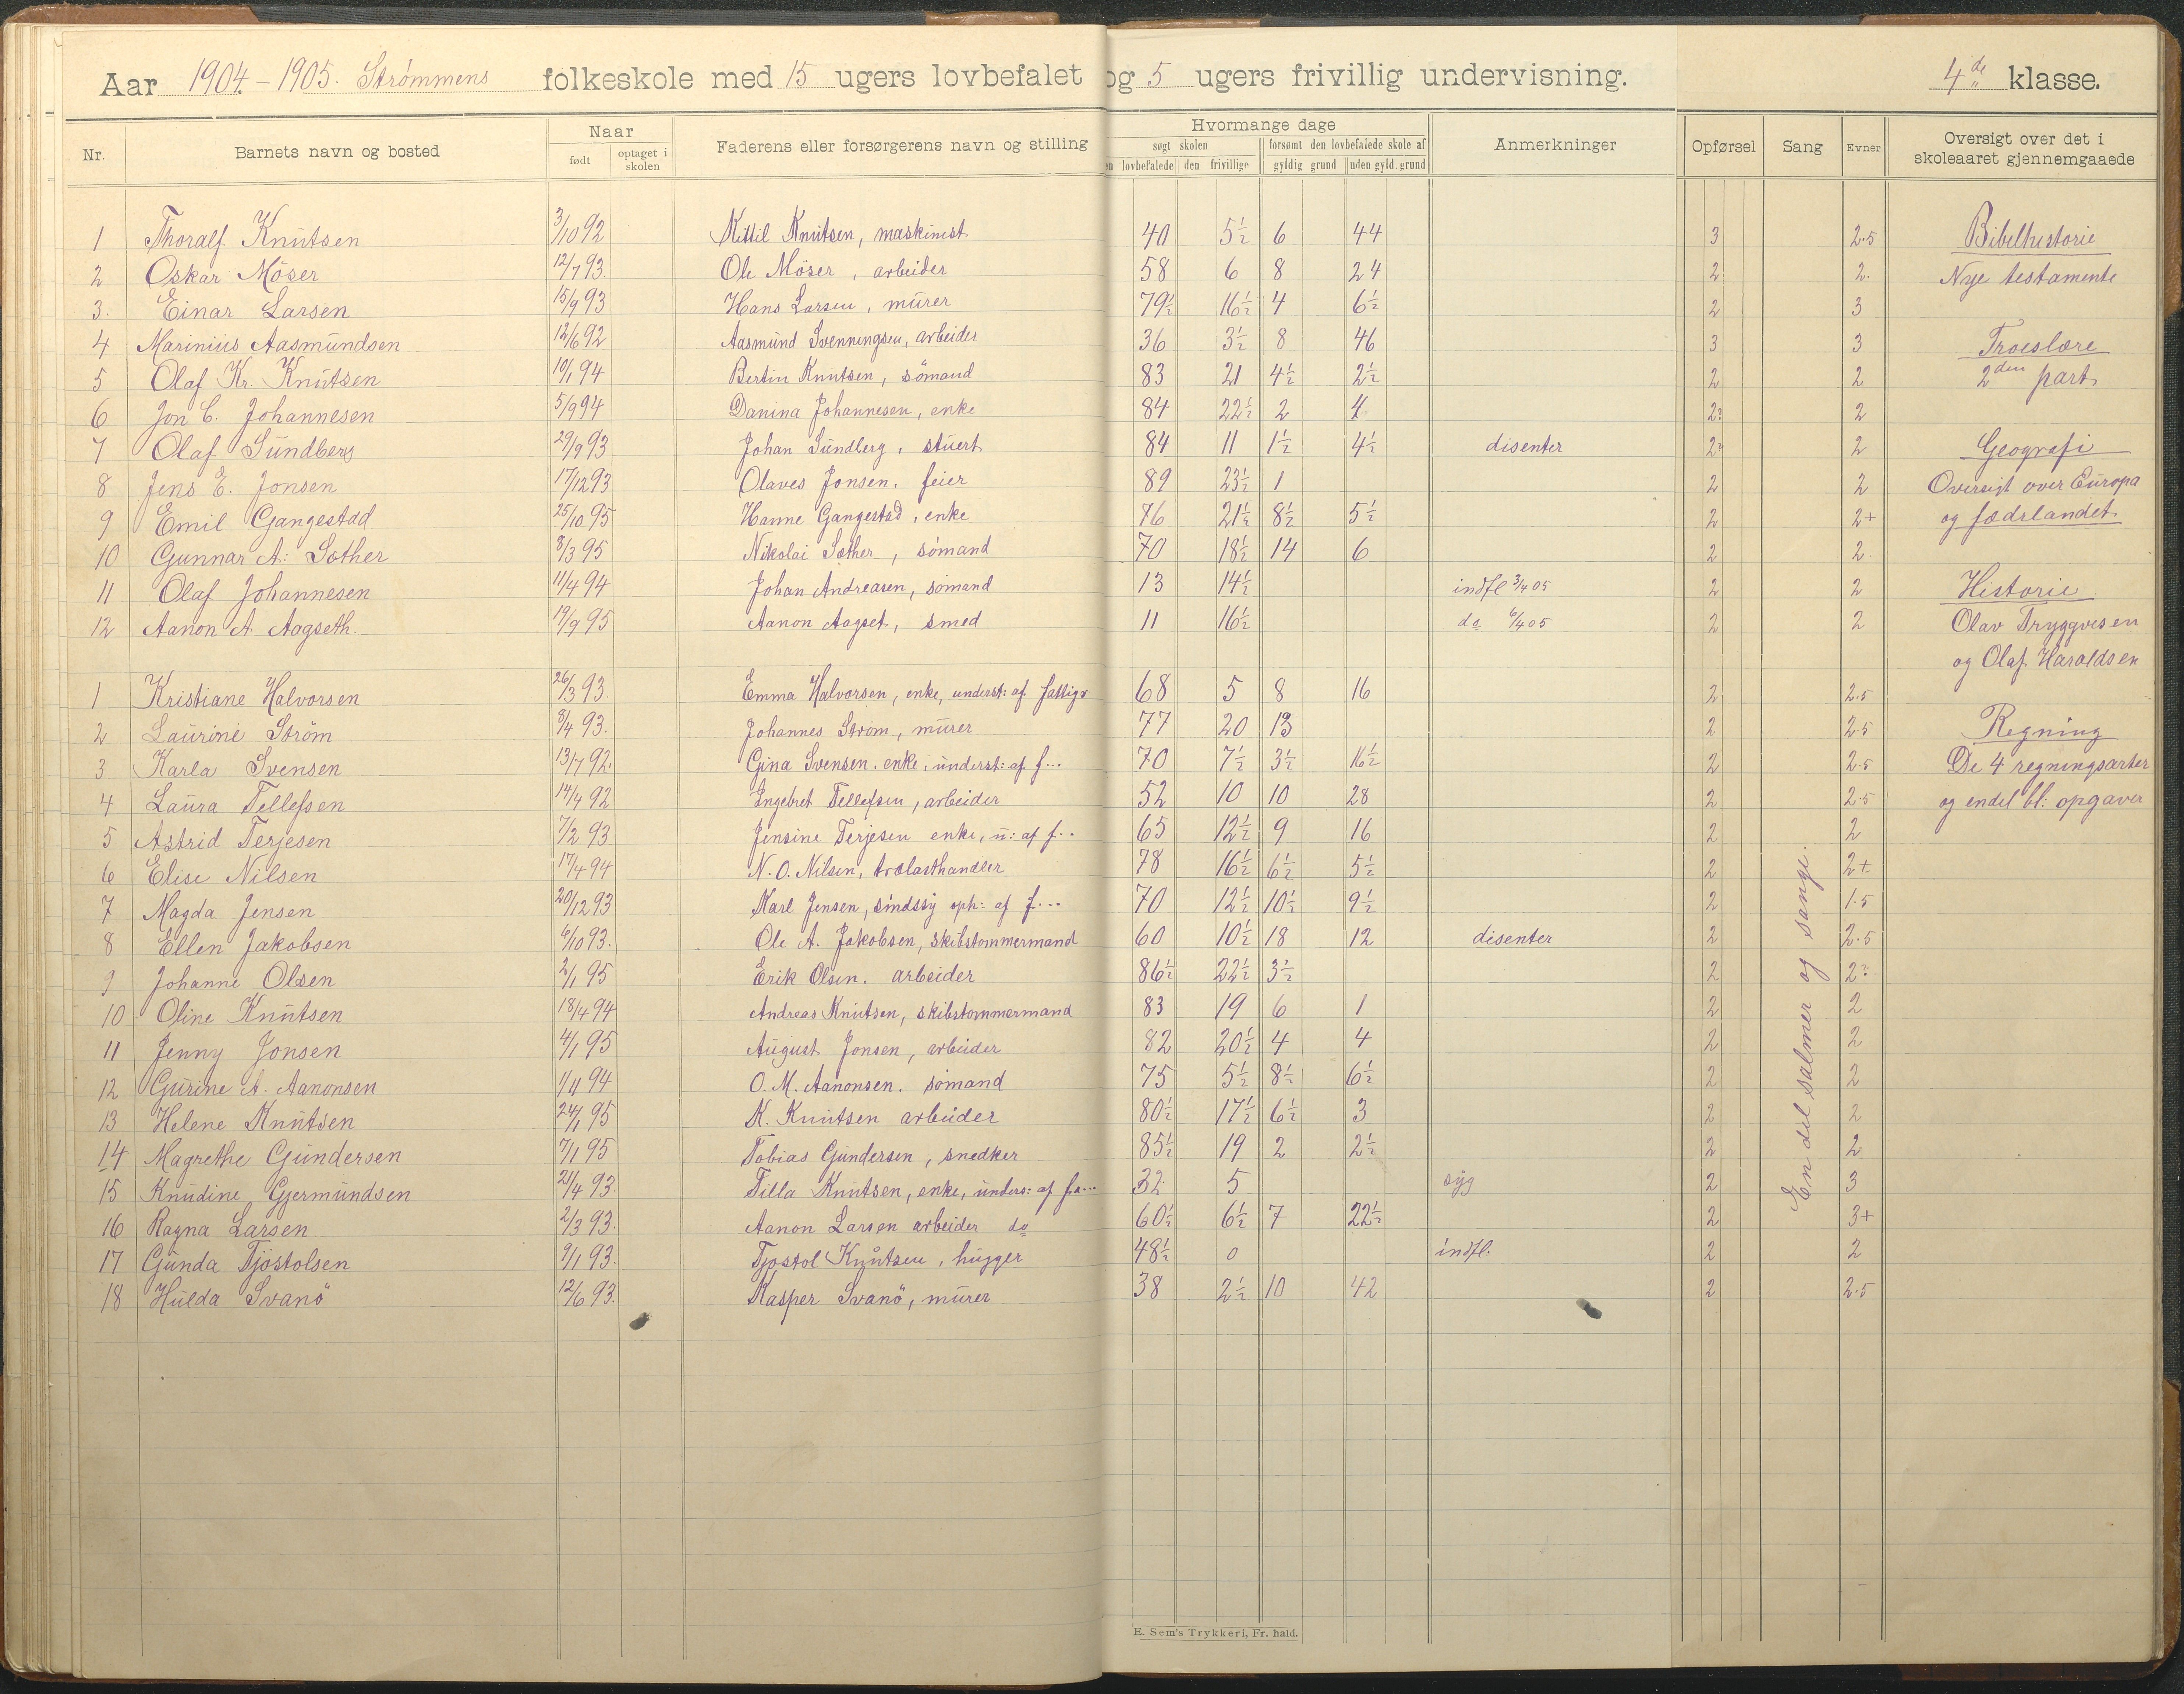 Aar 1904 - 1905. Strømmens folkeskole med 15 ugers lovbefalet og 5 ugers frivillig undervisning. 4de klasse.
Nr. Barnets navn og bosted Naar født optaget i skolen Faderens eller forsørgerens navn og stilling Hvormange dage søgt skolen den lovbefalede den frivillige forsømt den lovbefalede skole af gyldig grund uden gyld. grund Anmerkninger Opførsel Sang Evner Oversigt over det i skoleaaret gjennemgaaede
1 Thoralf Knutsen 3/10 92 Kittil Knutsen, maskinist 40 5½ 6 44 3 2.5 Bibelhistorie
2 Oskar Möser 12/7 93. Ole Möser, arbeider 58 6 8 24 2 2. Nye testamente
3. Einar Larsen 15/9 93 Hans Larsen, murer 79½ 16½ 4 6½ 2 3
4 Marinius Aasmundsen 12/6 92 Aasmund Svenningsen, arbeider 36 3½ 8 46 3 3 Troeslære
5 Olaf Kr. Knutsen 10/1 94 Bertin Knutsen, sömand 83 21 4½ 2½ 2 2 2den part
6 Jon C. Johannesen 5/9 94 Danina Johannesen, enke 84 22½ 2 4 2? 2
7 Olaf Sundberg 29/9 93 Johan Sundberg, stuert 84 11 1½ 4½ disenter 2? 2 Geografi
8 Jens E. Jonsen 17/12 93 Olaves Jonsen. feier 89 23½ 1 2 2 Oversigt over Europa
9 Emil Gangestad 25/10 95 Hanne Gangestad, enke 76 21½ 8½ 5½ 2 2+ og fædrlandet
10 Gunnar A: Sother 8/3 95 Nikolai Sother, sömand 70 18½ 14 6 2 2.
11 Olaf Johannesen 11/4 94 Johan Andreasen, sömand 13 14½ indfl 3/4 05 2 2 Historie
12 Aanon A Aagseth. 19/9 95 Aanon Aagset, smed 11 16½ do 6/4 05 2 2 Olav Tryggvesen
og Olaf Haraldsen
1 Kristiane Halvorsen 26/3 93. Emma Halvorsen, enke, underst: af fattigv 68 5 8 16 2 2.5
2 Laurine Ström 8/4 93. Johannes Ström, murer 77 20 13 2 2.5 Regning
3 Karla Svensen 13/7 92. Gina Svensen. enke, underst: af f... 70 7½ 3½ 16½ 2 2.5 De 4 regningsarter
4 Laura Tellefsen 14/4 92 Engebret Tellefsen, arbeider 52 10 10 28 2 2.5 og endel bl: opgaver
5 Astrid Terjesen 7/2 93 Jensine Terjesen enke, u: af f.. 65 12½ 9 16 2 2
6 Elise Nilsen 17/4 94 N. O. Nilsen, trælasthandler 78 16½ 6½ 5½ 2 2+
7 Magda Jensen 20/12 93 Karl Jensen, sindssyg oph: af f... 70 12½ 10½ 9½ 2 1.5
8 Ellen Jakobsen 6/10 93. Ole A. Jakobsen, skibstømmermand 60 10½ 18 12 disenter 2 2.5
9 Johanne Olsen 2/1 95 Erik Olsen. arbeider 86½ 22½ 3½ 2 2?
10 Oline Knutsen 18/4 94 Andreas Knutsen, skibstommermand 83 19 6 1 2 2
11 Jenny Jonsen 4/1 95 August Jonsen, arbeider 82 20½ 4 4 2 2
12 Gurine A. Aanonsen 1/11 94 O. M. Aanonsen. sömand 75 5½ 8½ 6½ 2 2
13 Helene Knutsen 24/1 95 K. Knutsen arbeider 80½ 17½ 6½ 3 2 2
14 Magrethe Gundersen 7/1 95 Tobias Gundersen, snedker 85½ 19 2 2½ 2 2
15 Knudine Gjermundsen 21/4 93. Tilla Knutsen, enke, unders: af fa... 32 5 syg 2 3
16 Ragna Larsen 2/3 93. Aanon Larsen arbeider do 60½ 6½ 7 22½ 2 3+
17 Gunda Tjöstolsen 9/1 93. Tjostol Knutsen, hugger 48½ 0 indfl: 2 2
18 Hulda Svanö 12/6 93. Kasper Svanö, murer 38 2½ 10 42 2 2.5
En del salmer og sange.
E. Sem's Trykkeri, Fr. hald.